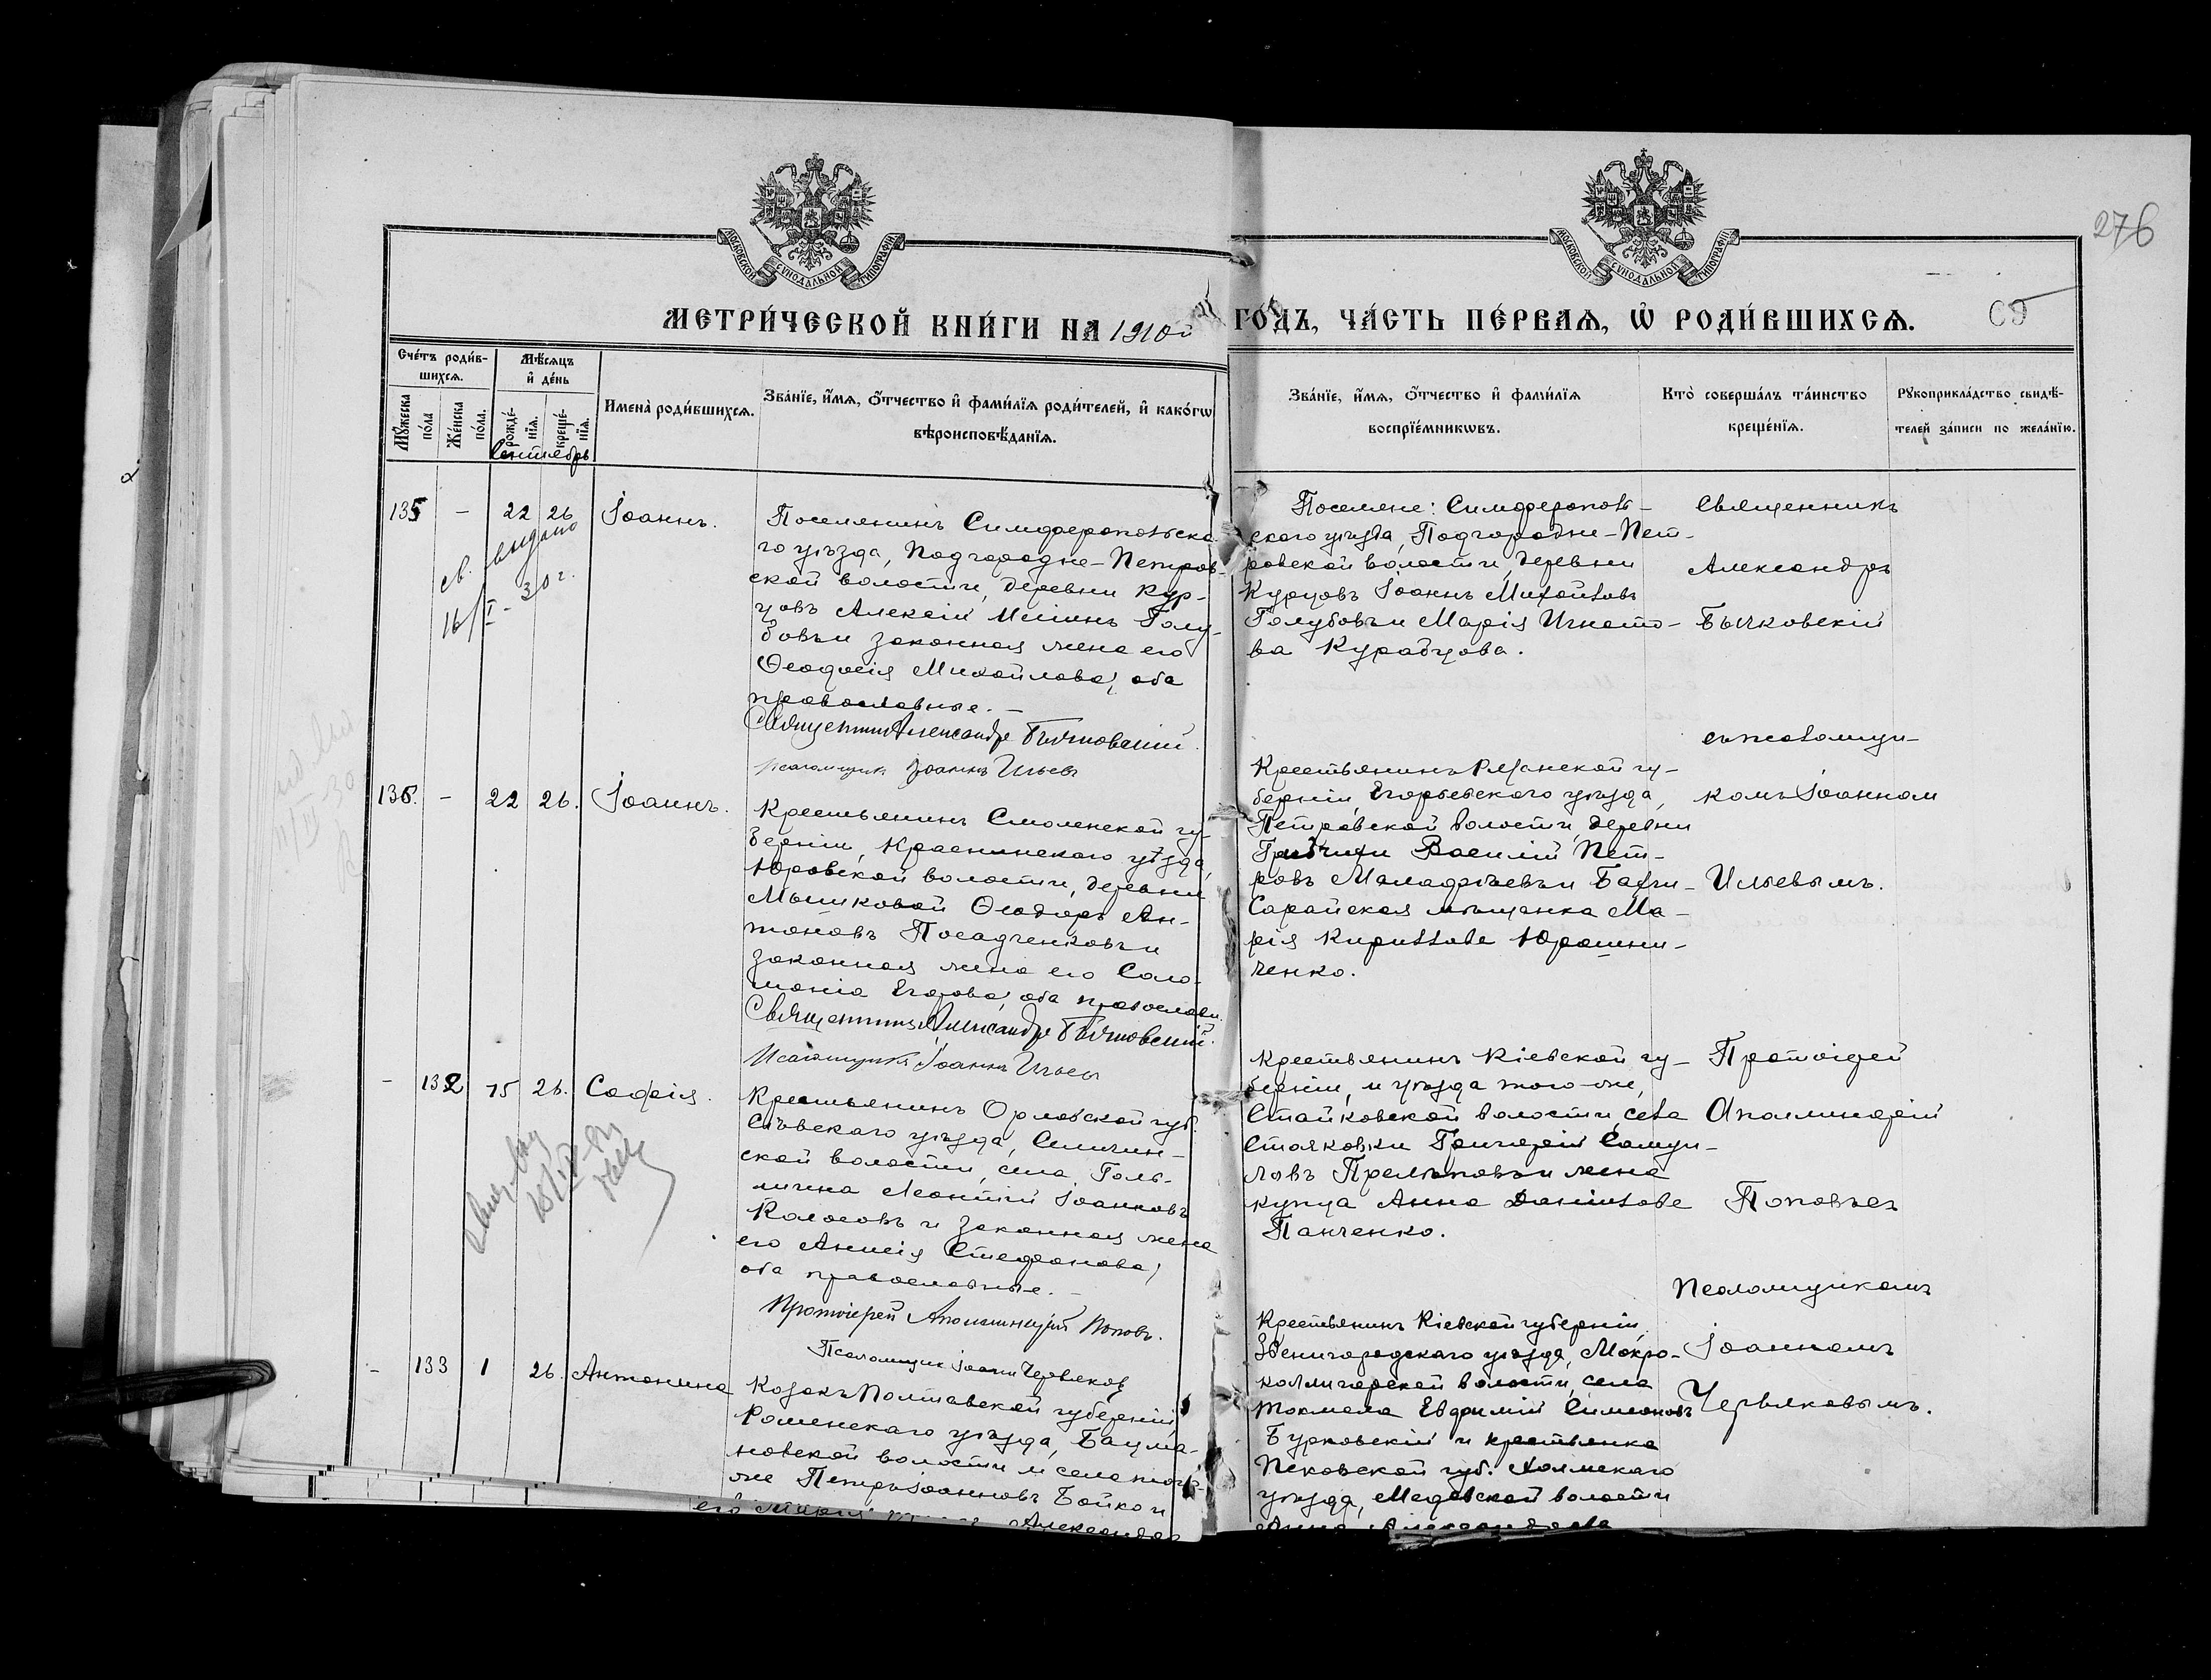 276
МОСКОВСКОЙ СѴНОДАЛЬНОЙ ТИПОГРАФІИ
МОСКОВСКОЙ СѴНОДАЛЬНОЙ ТИПОГРАФІИ
МЕТРИ́ЧЕСКОЙ КНИ́ГИ НА 1910й ГО́ДЪ, ЧА́СТЬ ПЕ́РВАѦ, Ѡ҆ РОДИ́ВШИХСѦ.
Сче́тъ роди́в-
шихсѧ.
Мꙋ́жеска по́ла
Же́нска по́ла.
Мѣ́сѧцъ
и҆ де́нь
рожде́-нїѧ.
креще́-нїѧ.
Сентябрь
Имена̀ роди́вшихсѧ.
Зва́нїе, и҆́мѧ, ѻ҆́тчество и҆ фами́лїѧ роди́телей, и҆ како́гѡ
вѣроисповѣ́данїѧ.
Зва́нїе, и҆́мѧ, ѻ҆́тчество и҆ фами́лїѧ
воспрїе́мникѡвъ.
Кто̀ соверша́лъ та́инство
креще́нїѧ.
Рꙋкоприкла́дство свидѣ́-
телей за́писи по жела́нїю.
135 – 22 26 Іоаннъ.
св. выдано
16/I - 30 г.
Поселянинъ Симферопольска-
го уѣзда, Подгородне-Петров-
ской волости, деревни Кур-
цовъ Алексій Голу-
бовъ и законная жена его
Ѳеодосія Михайлова, оба
православные. –
Священникъ Александръ Бычковскій.
Псаломщикъ Іоаннъ Ильевъ
Поселяне: Симферополь-
скаго уѣзда, Подгородне-Пет-
ровской волости, деревни
Курцовъ Іоаннъ Михайловъ
Голубовъ и Марія Игнато-
ва Курабцова.
Священникъ
Александръ
Бычковскій
съ псаломщи-
комъ Іоанномъ
Ильевымъ.
136. – 22 26. Іоаннъ.
Крестьянинъ Смоленской гу-
берніи, Краснинскаго уѣзда,
Юровской волости, деревни
Мышковой Ѳеодоръ Ан-
тоновъ Посадченковъ и
законная жена его Соло-
монія Егорова, оба православн.
Священникъ Александръ Бычковскій.
Псаломщикъ Іоаннъ Ильевъ
Крестьянинъ Рязанской гу-
берніи, Егорьевскаго уѣзда,
Петровской волости, деревни
Василій Пет-
ровъ Маладѣевъ и Бахчи-
Сарайская мѣщанка Ма-
рія Кириллова Юрошни-
ченко.
– 132 15 26. Софія.
Крестьянинъ Орловской губ.
Сѣвскаго уѣзда, Селичин-
ской волости, села Голы-
шина Леонтій Іоанновъ
Колосовъ и законная жена
его Анисія Стефанова,
оба православные. –
Протоіерей Аполлинарій Поповъ.
Псаломщикъ Іоаннъ Червяковъ
Крестьянинъ Кіевской гу-
берніи, и уѣзда того-же,
Стайковской волости, села
Стояковки Григорій Самуи-
ловъ и жена
купца Анна Даніилова
Панченко.
Протоіерей
Аполлинарій
Поповъ съ
Псаломщикомъ
Іоанномъ
Червяковымъ.
– 133 1 26. Антонина
Козакъ Полтавской губерніи,
Роменскаго уѣзда, Бацма-
новской волости и села того-
же Петръ Іоанновъ Бойко и
его Александр
Крестьянинъ Кіевской губерніи,
Звенигородскаго уѣзда, Мокро-
калигорской волости, села
Евфимій Симоновъ
Бурковскій и крестьянка
Псковской губ. Холмскаго
уѣзда, Медовской волости
Анна Александрова